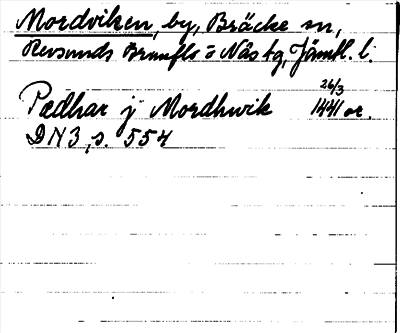 Mordviken, by, Bräcke sn,
Revsunds Brunflo o Näs tg, Jämtl. l.
Pædhar j Mordhwik 26/3 1441 or.
DN3, s. 554